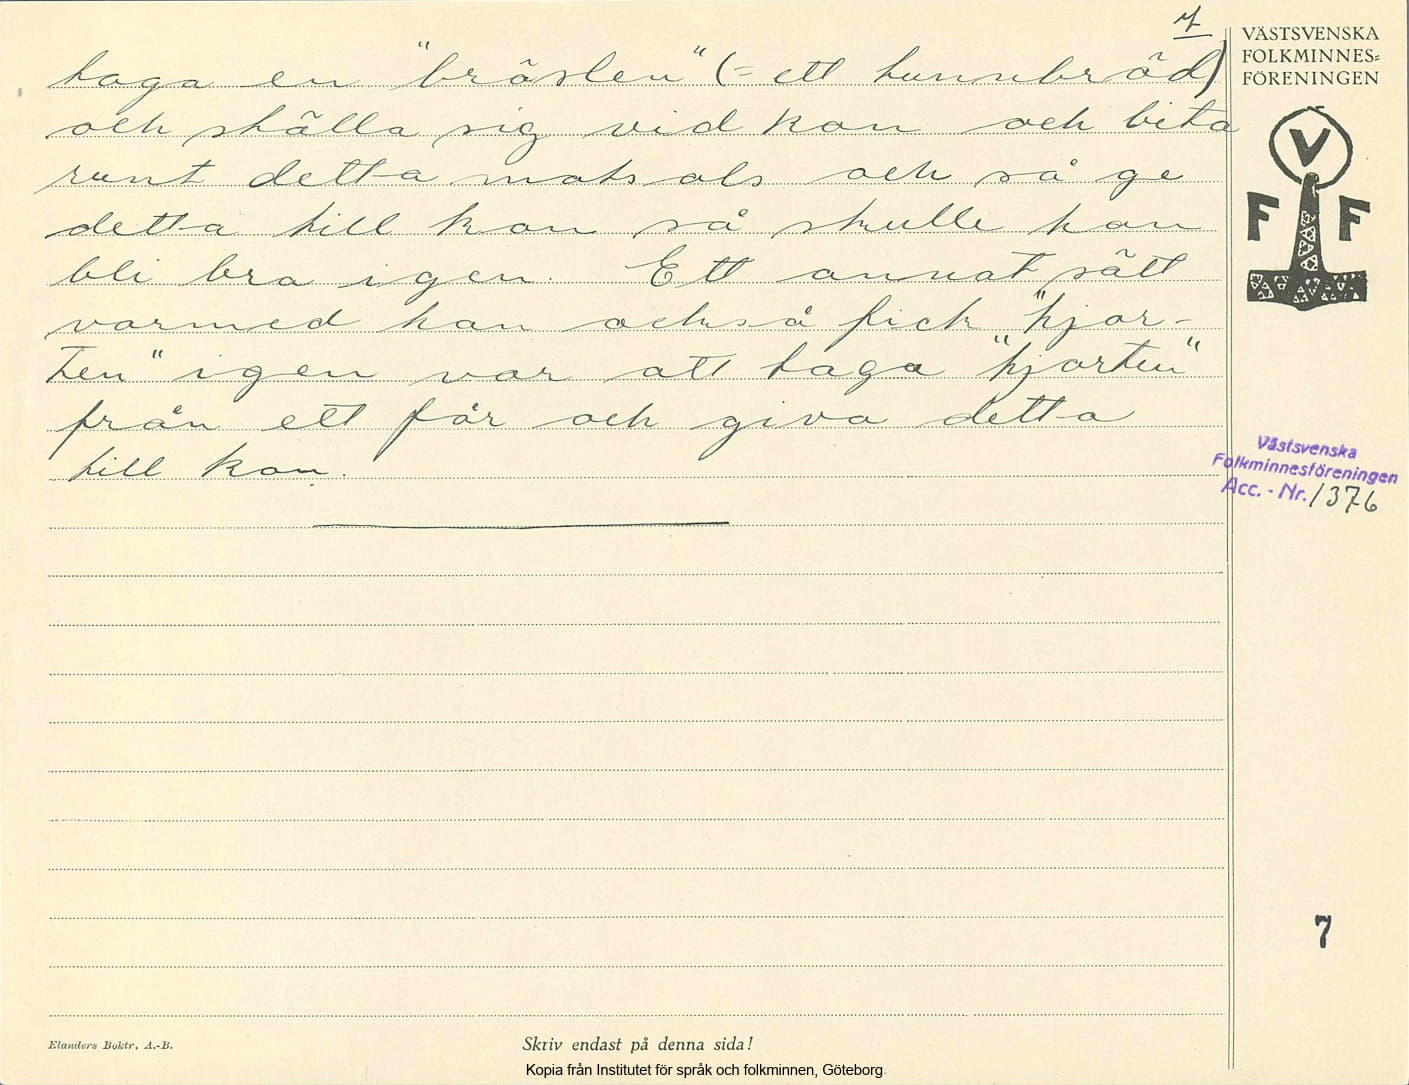 7
taga en "bröslen" (= ett tunnbröd)
och ställa sig vid kon och bita
runt detta motsols och så ge
detta till kon så skulle hon
bli bra igen. Ett annat sätt
varmed kon också fick "hjor-
ten" igen var att taga "hjorten"
från ett får och giva detta
till kon.
VÄSTSVENSKA
FOLKMINNES=
FÖRENINGEN
V
F F
Västsvenska
Folkminnesföreningen
Acc. - Nr. 1376
7
Elanders Boktr. A.-B.
Skriv endast på denna sida!
Kopia från Institutet för språk och folkminnen, Göteborg.